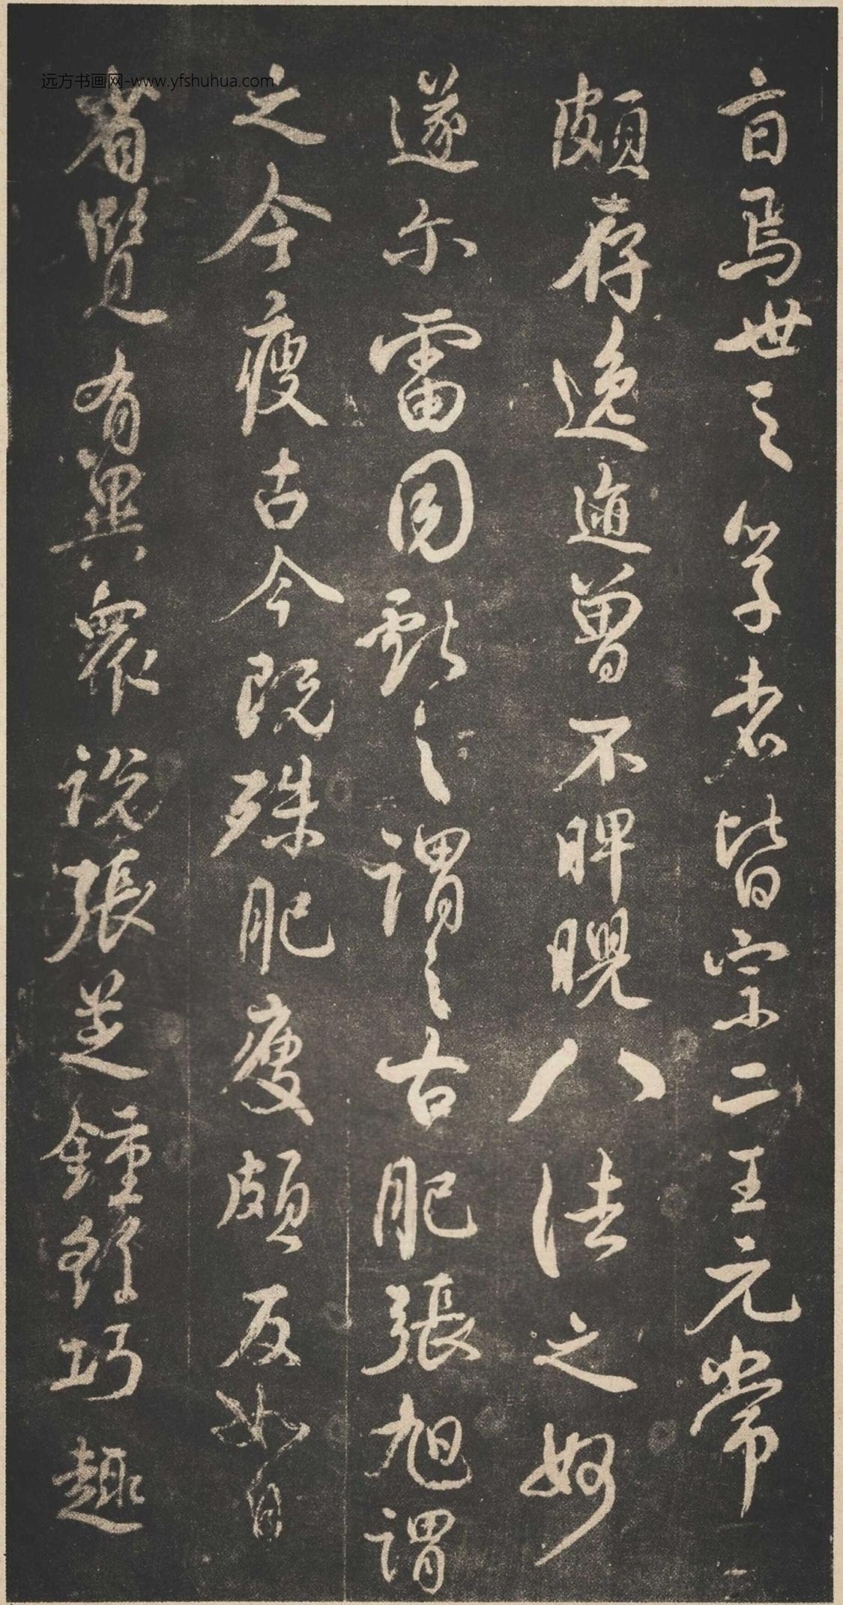 远方书画网-www.yfshuhua.com
焉世之學者皆宗二王元常
頗存逸迹曾不睥睨八法之妙
遂尓雷同獻之謂之古肥張旭謂
之今瘦古今既殊肥瘦頗反如自
省覽有異衆說張芝鍾繇巧趣